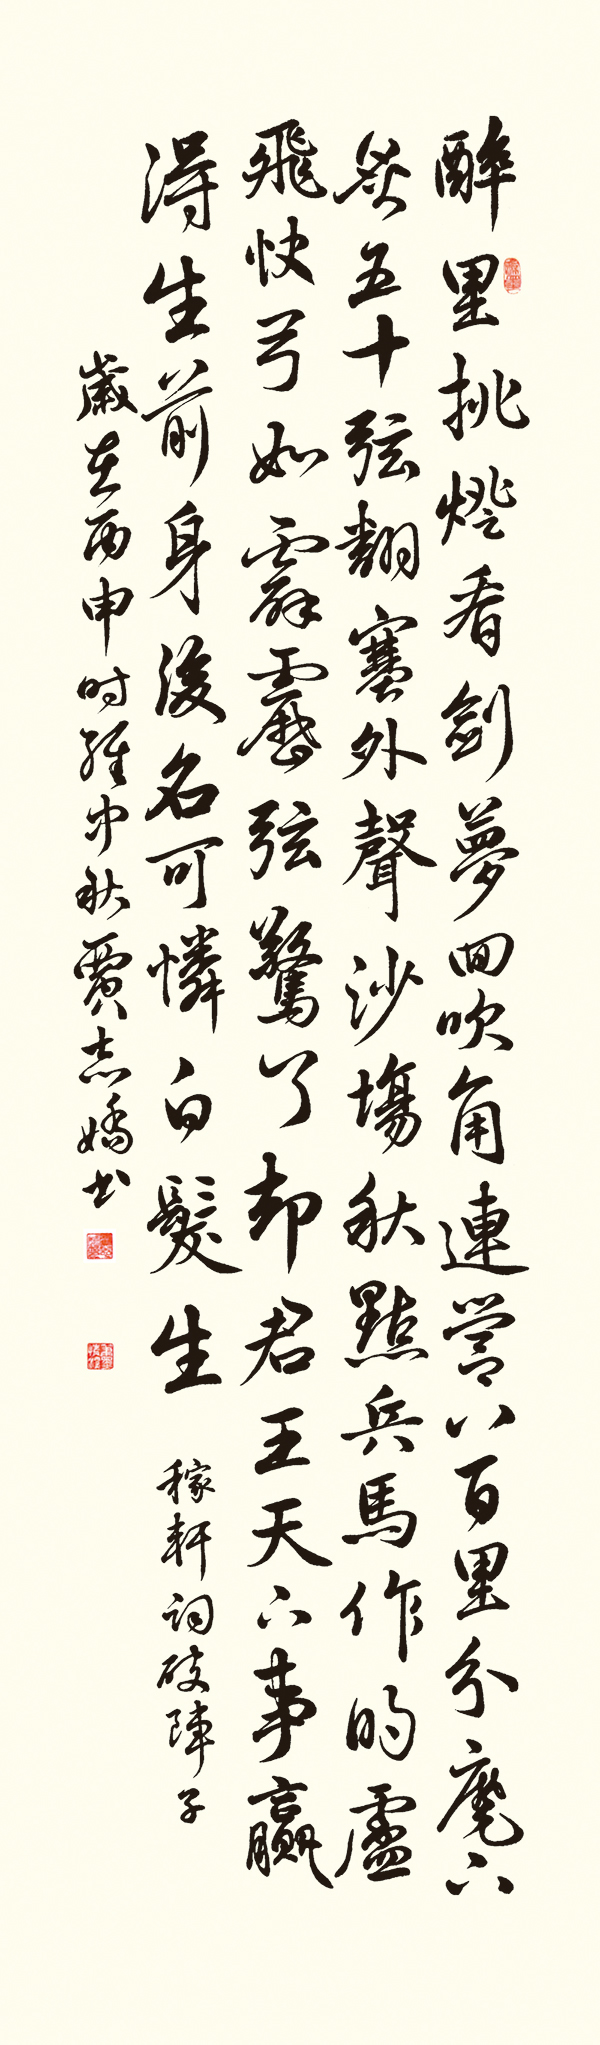 醉里挑燈看劍夢回吹角連營八百里分麾下
炙五十弦翻塞外聲沙場秋點兵馬作的盧
飛快弓如霹靂弦驚了却君王天下事贏
得生前身後名可憐白髮生 稼軒詞破陣子
歲在丙申时維中秋賈志嬌书